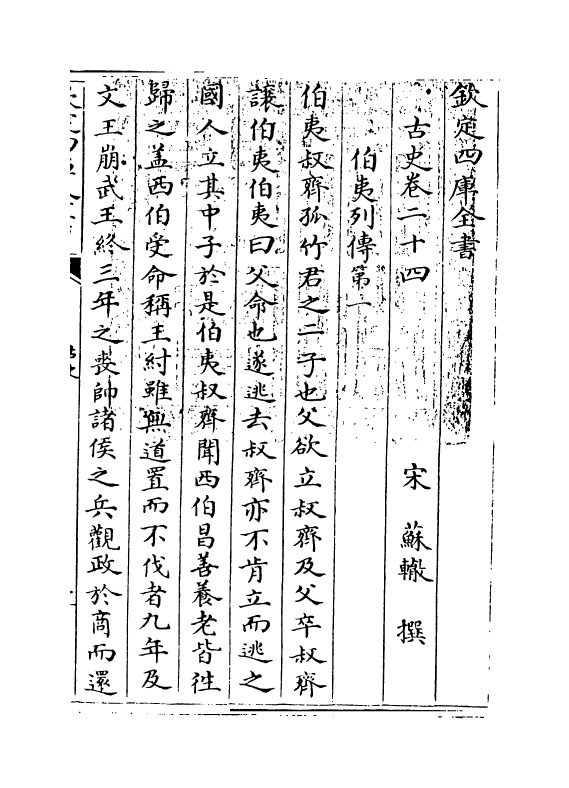 欽定四庫全書
古史卷二十四
宋 蘇轍 撰
伯夷列傳第一
伯夷叔齊孤竹君之二子也父欲立叔齊及父卒叔齊
讓伯夷伯夷曰父命也遂逃去叔齊亦不肯立而逃之
國人立其中子於是伯夷叔齊聞西伯昌善養老皆往
歸之盖西伯受命稱王紂雖無道置而不伐者九年及
文王崩武王終三年之喪帥諸侯之兵觀政於商而還
古史